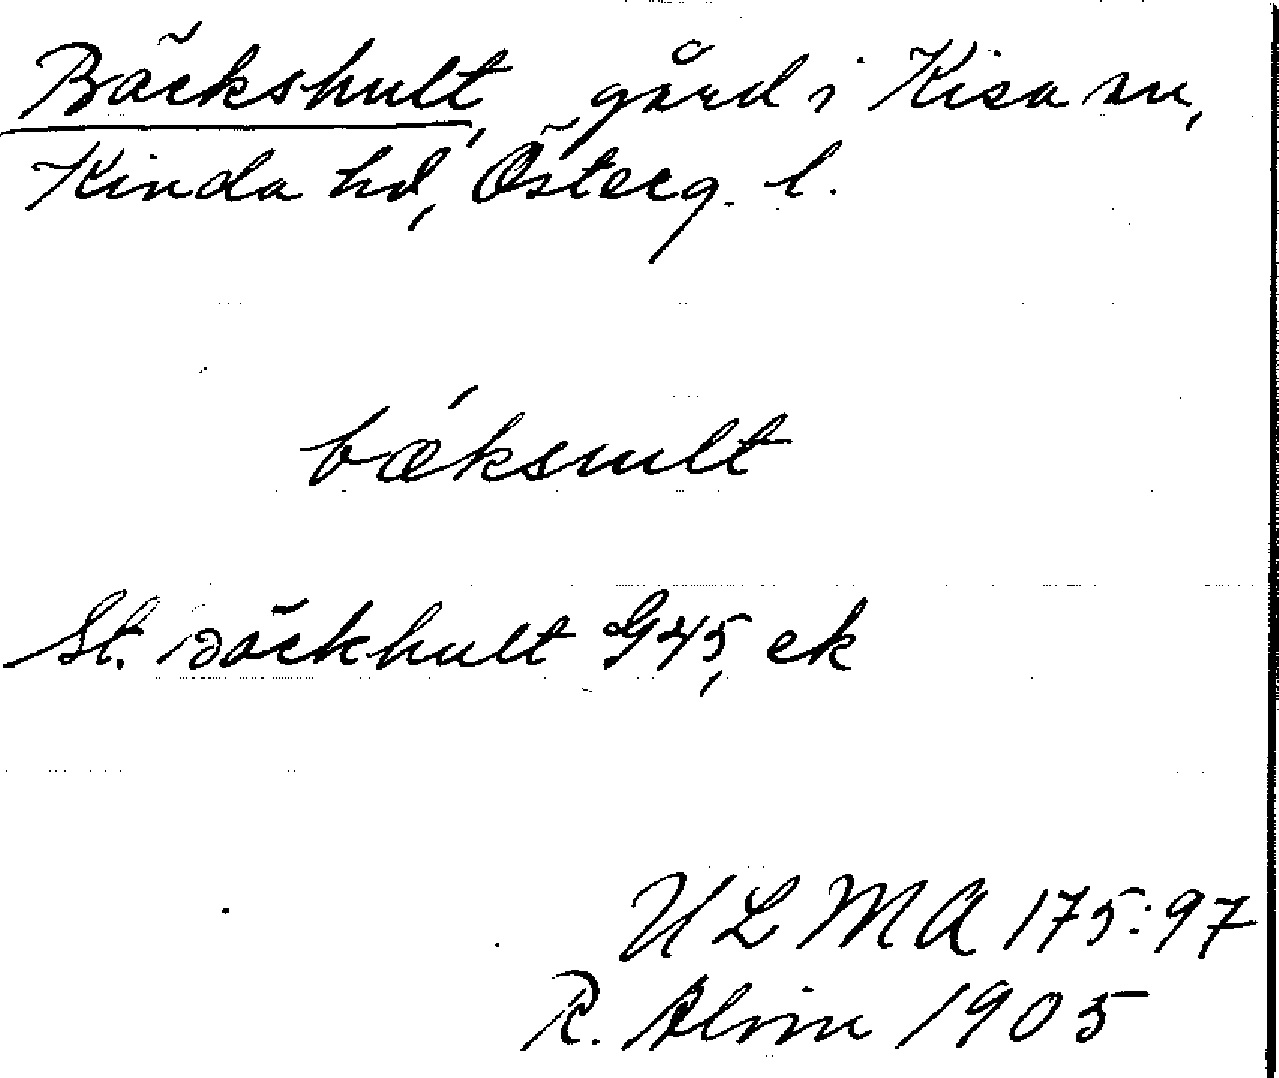 Bäckshult, gård i Kisa sn,
Kinda hd, Österg. l.
bǽksult
St. Bäckhult G45, ek
ULMA 175:97
R. Alvin 1905